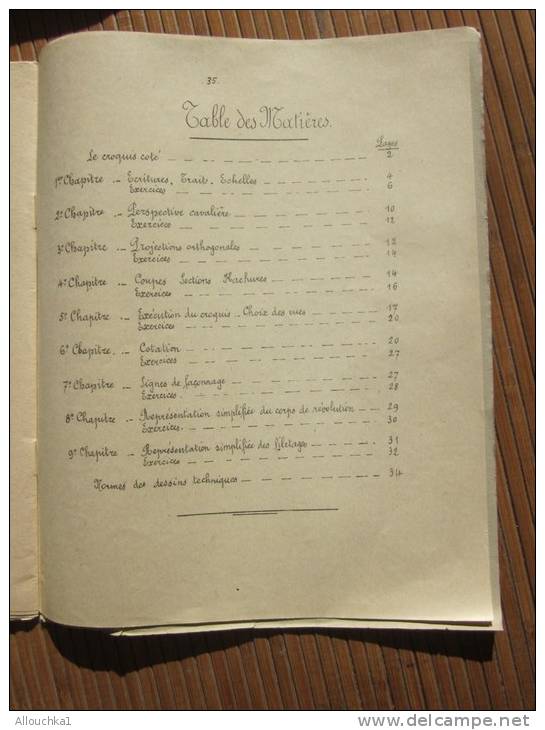 35.
Table des Matières.
Pages
Le croquis coté 2
1er Chapitre _ Ecritures, Trait, Echelles 4
Exercices 6
2e Chapitre _ Perspective cavalière 10
Exercices 12
3e Chapitre _ Projections orthogonales 12
Exercices 14
4e Chapitre _ Coupes Sections Hachures 14
Exercices 16
5e Chapitre _ Exécution du croquis _ Choix des vues 17
Exercices 20
6e Chapitre _ Cotation 20
Exercices 27
7e Chapitre _ Signes de façonnage 27
Exercices 28
8e Chapitre _ Représentation simplifiée du corps de révolution 29
Exercices 30
9e Chapitre _ Représentation simplifiée des filetages 31
Exercices 32
Normes des dessins techniques 34
Allouchka1
www.delcampe.net